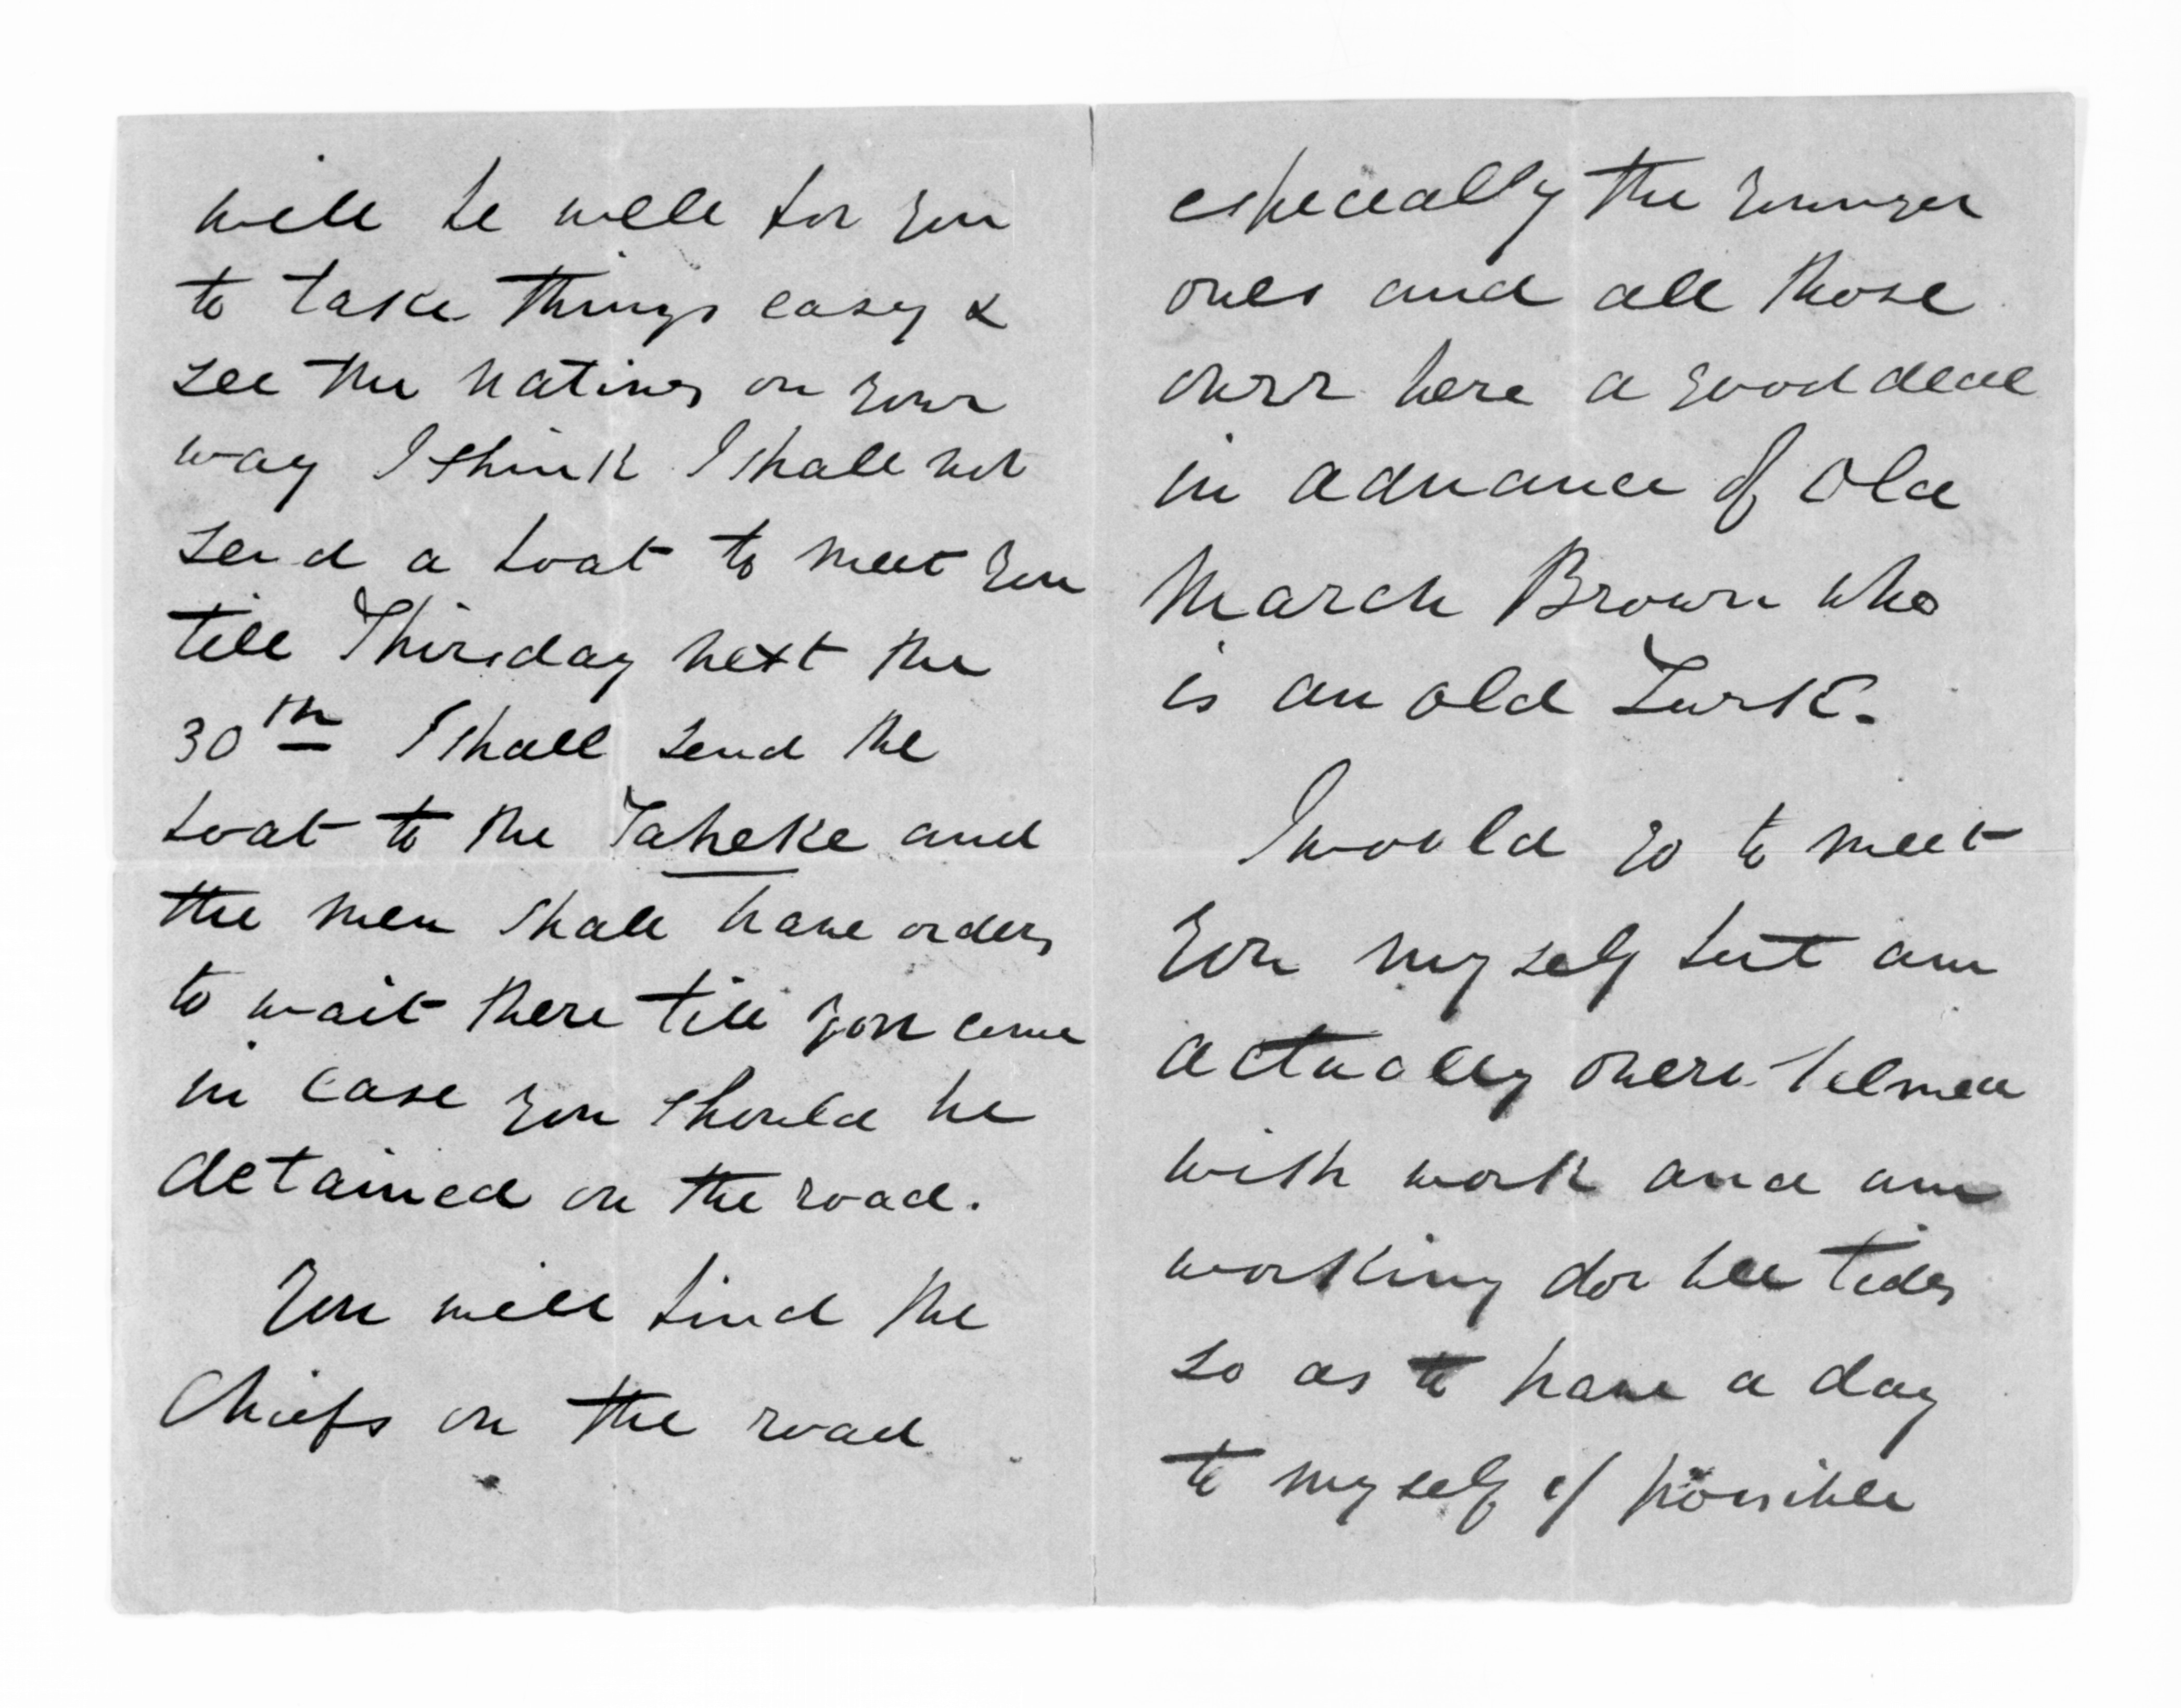 will be well for you
to take things easy &
see the natives on your
way I think I shall not
send a boat to meet you
till Thursday next the
30th I shall send the
boat to the Taheke and
the men shall have orders
to wait there till you come
in case you should be
detained on the road.
You will find the
Chiefs on the road
especially the younger
ones and all those
over here a good deal
in advance of Old
March Brown who
is an old Turk.
I would go to meet
you myself but am
actually overwhelmed
with work and am
working double tides
so as to have a day
to myself if possible